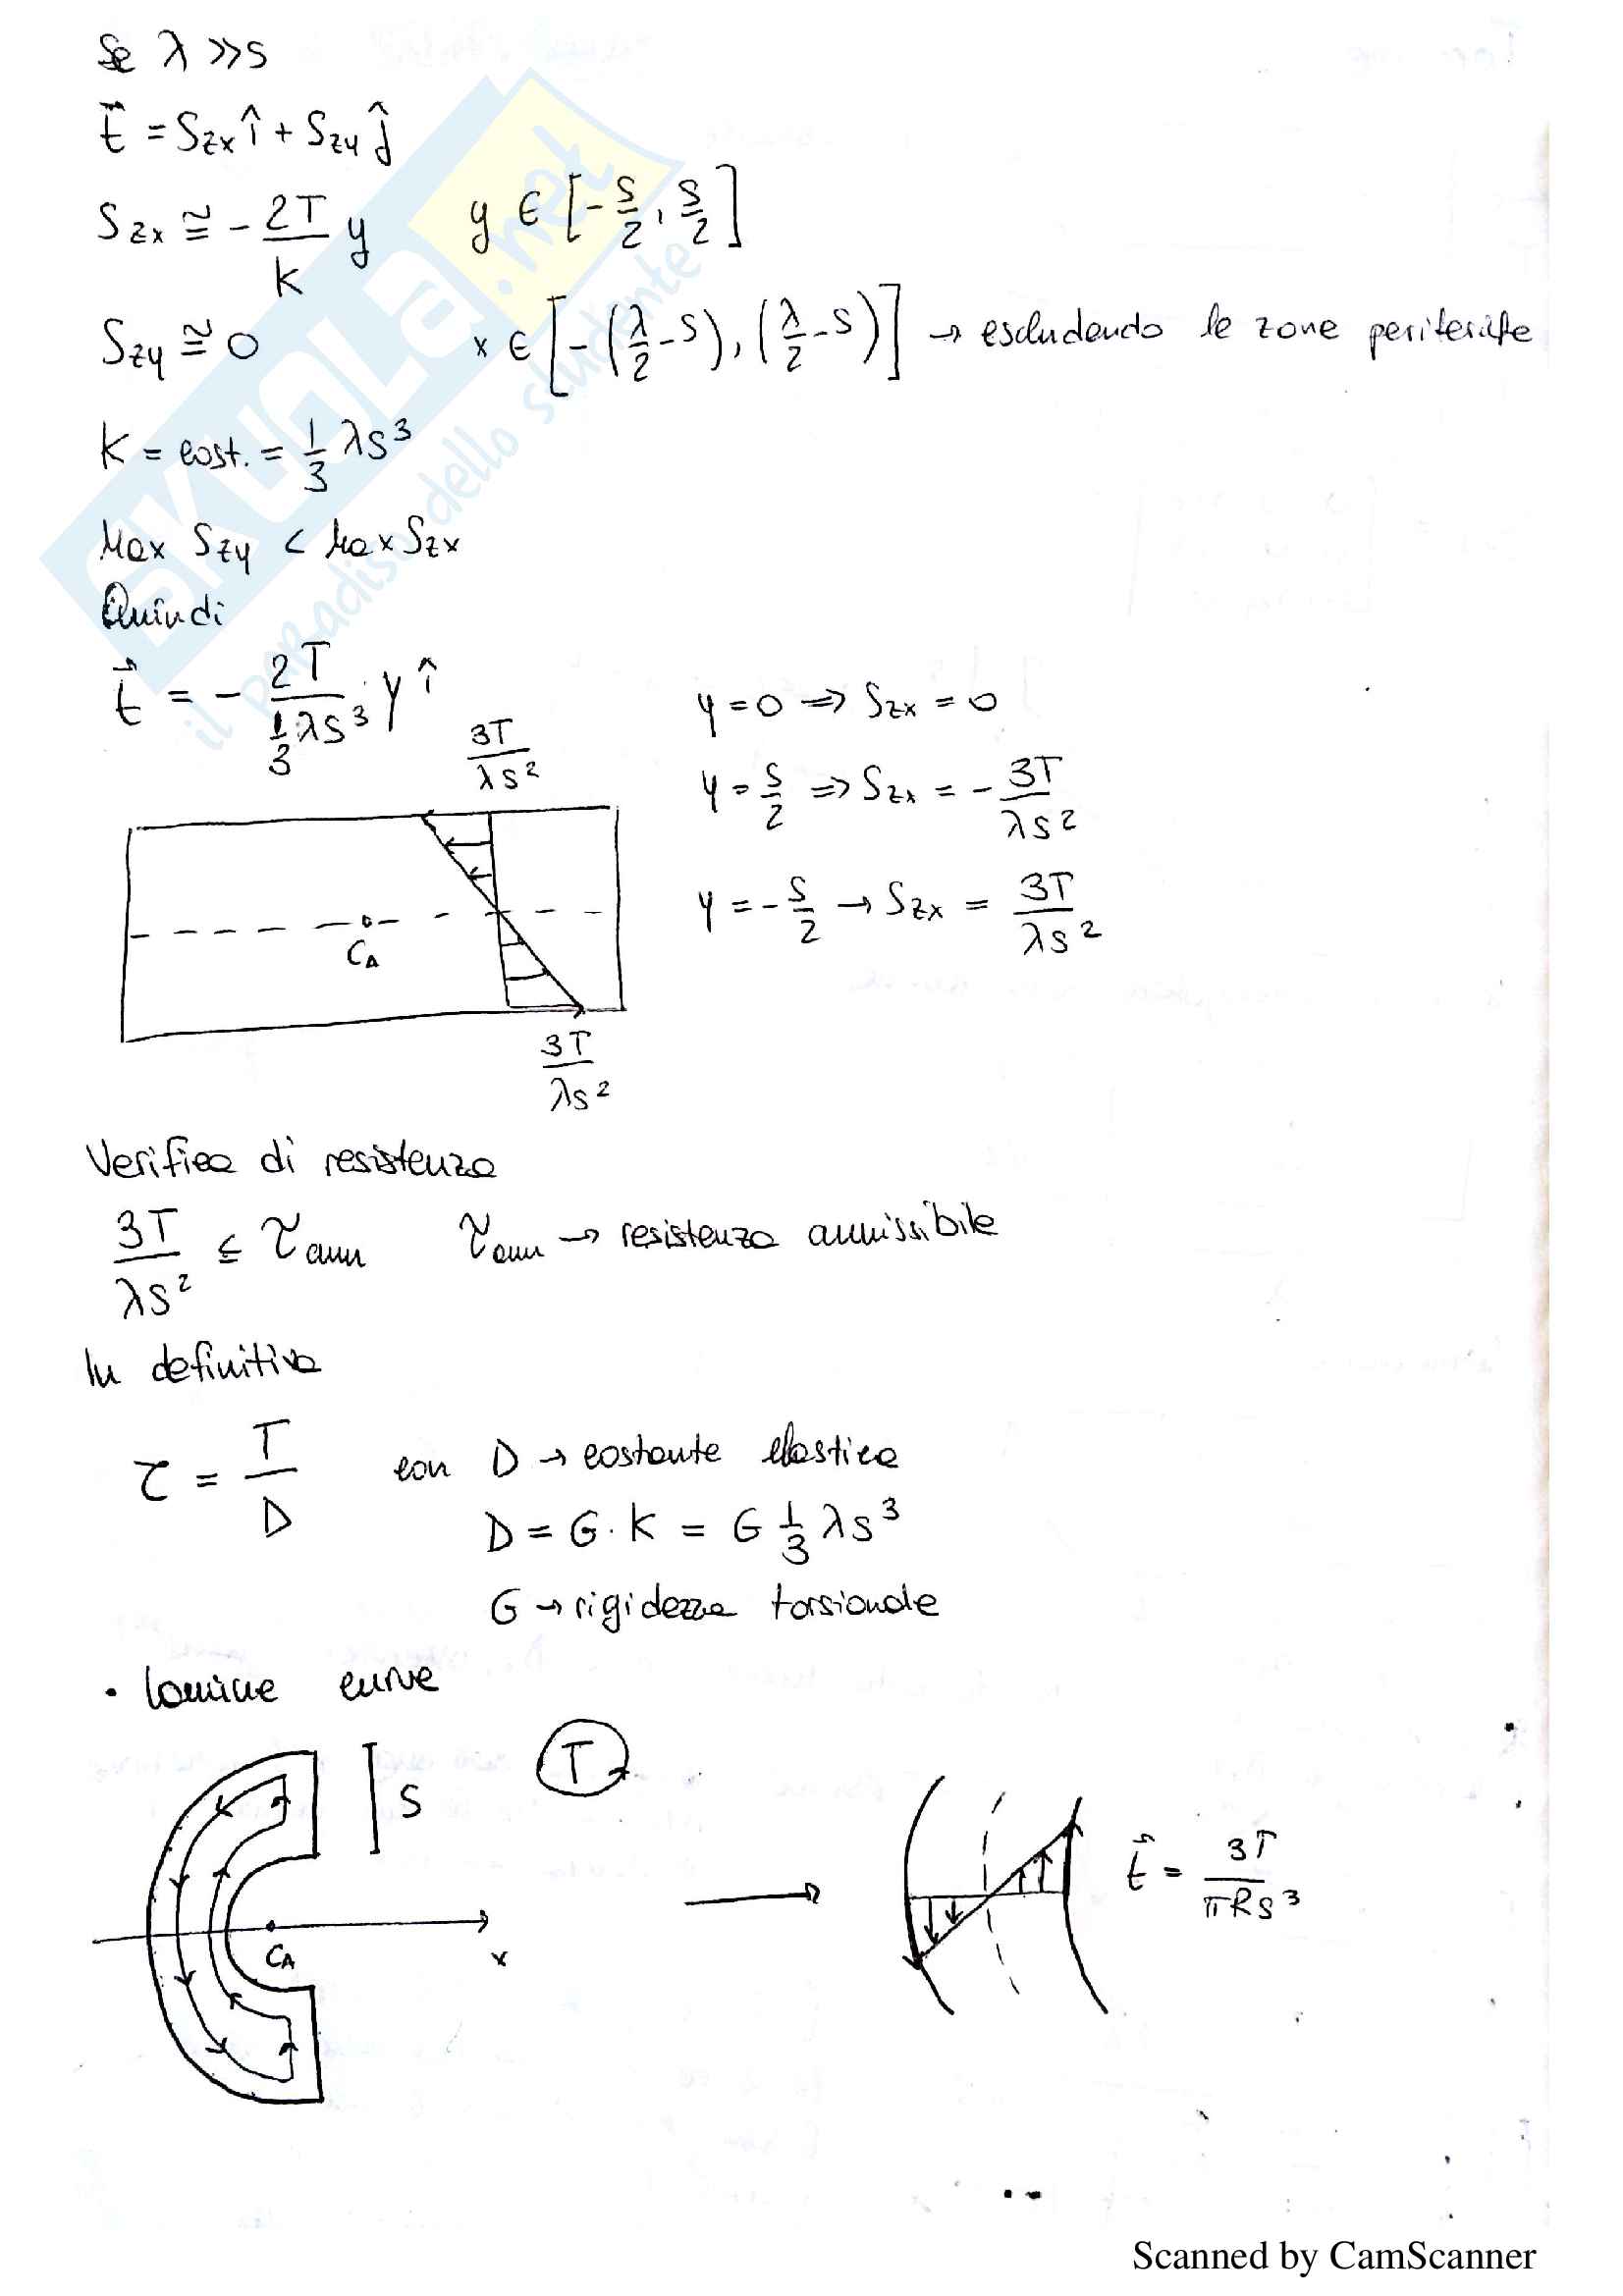 Se λ >> s
t⃗ = Szx î + Szy ĵ
Szx ≅ - 2T/K y    y ∈ [-s/2, s/2]
Szy ≅ 0    x ∈ [-(λ/2 - s), (λ/2 - s)] → escludendo le zone periferiche
K = cost. = 1/3 λs³
Max Szy < Max Szx
Quindi
t⃗ = - 2T / (1/3 λs³) · y î
y = 0 ⇒ Szx = 0
y = s/2 ⇒ Szx = - 3T/λs²
y = - s/2 → Szx = 3T/λs²
3T/λs²
CA
3T/λs²
Verifica di resistenza
3T/λs² ≤ τamm    τamm → resistenza ammissibile
In definitiva
τ = T/D    con D → costante elastica
D = G · K = G 1/3 λs³
G → rigidezza torsionale
• lamine curve
S
T
CA
x
t⃗ = 3T/πRs³
SKUOLA.net
il paradiso dello studente
Scanned by CamScanner